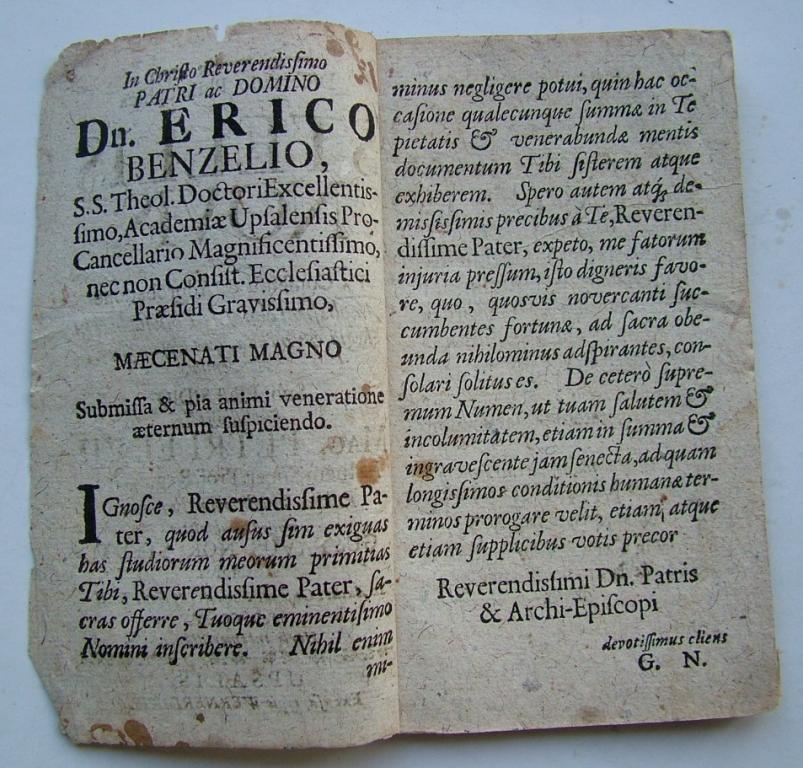 In Chriſto Reverendiſſimo
PATRI ac DOMINO
Dn. ERICO
BENZELIO,
S.S. Theol. Doctori Excellentiſ-
ſimo, Academiæ Upſalenſis Pro-
Cancellario Magnificentiſſimo,
nec non Conſiſt. Eccleſiaſtici
Præſidi Graviſſimo,
MÆCENATI MAGNO
Submiſſa & pia animi veneratione
æternum ſuſpiciendo.
IGnoſce, Reverendiſſime Pa-
ter, quod auſus ſim exiguas
has ſtudiorum meorum primitias
Tibi, Reverendiſſime Pater, ſa-
cras offerre, Tuoque eminentiſimo
Nomini inſcribere. Nihil enim
mi-
minus negligere potui, quin hac oc-
caſione qualecunque ſummæ in Te
pietatis & venerabundæ mentis
documentum Tibi ſiſterem atque
exhiberem. Spero autem atq; de-
miſſiſſimis precibus à Te, Reveren-
diſſime Pater, expeto, me fatorum
injuria preſſum, iſto digneris favo-
re, quo, quosvis novercanti ſuc-
cumbentes fortunæ, ad ſacra obe-
unda nihilominus adſpirantes, con-
ſolari ſolitus es. De ceterò ſupre-
mum Numen, ut tuam ſalutem &
incolumitatem, etiam in ſumma &
ingraveſcente jam ſenecta, ad quam
longiſſimos conditionis humanæ ter-
minos prorogare velit, etiam, atque
etiam ſupplicibus votis precor
Reverendiſſimi Dn. Patris
& Archi-Epiſcopi
devotiſſimus cliens
G. N.